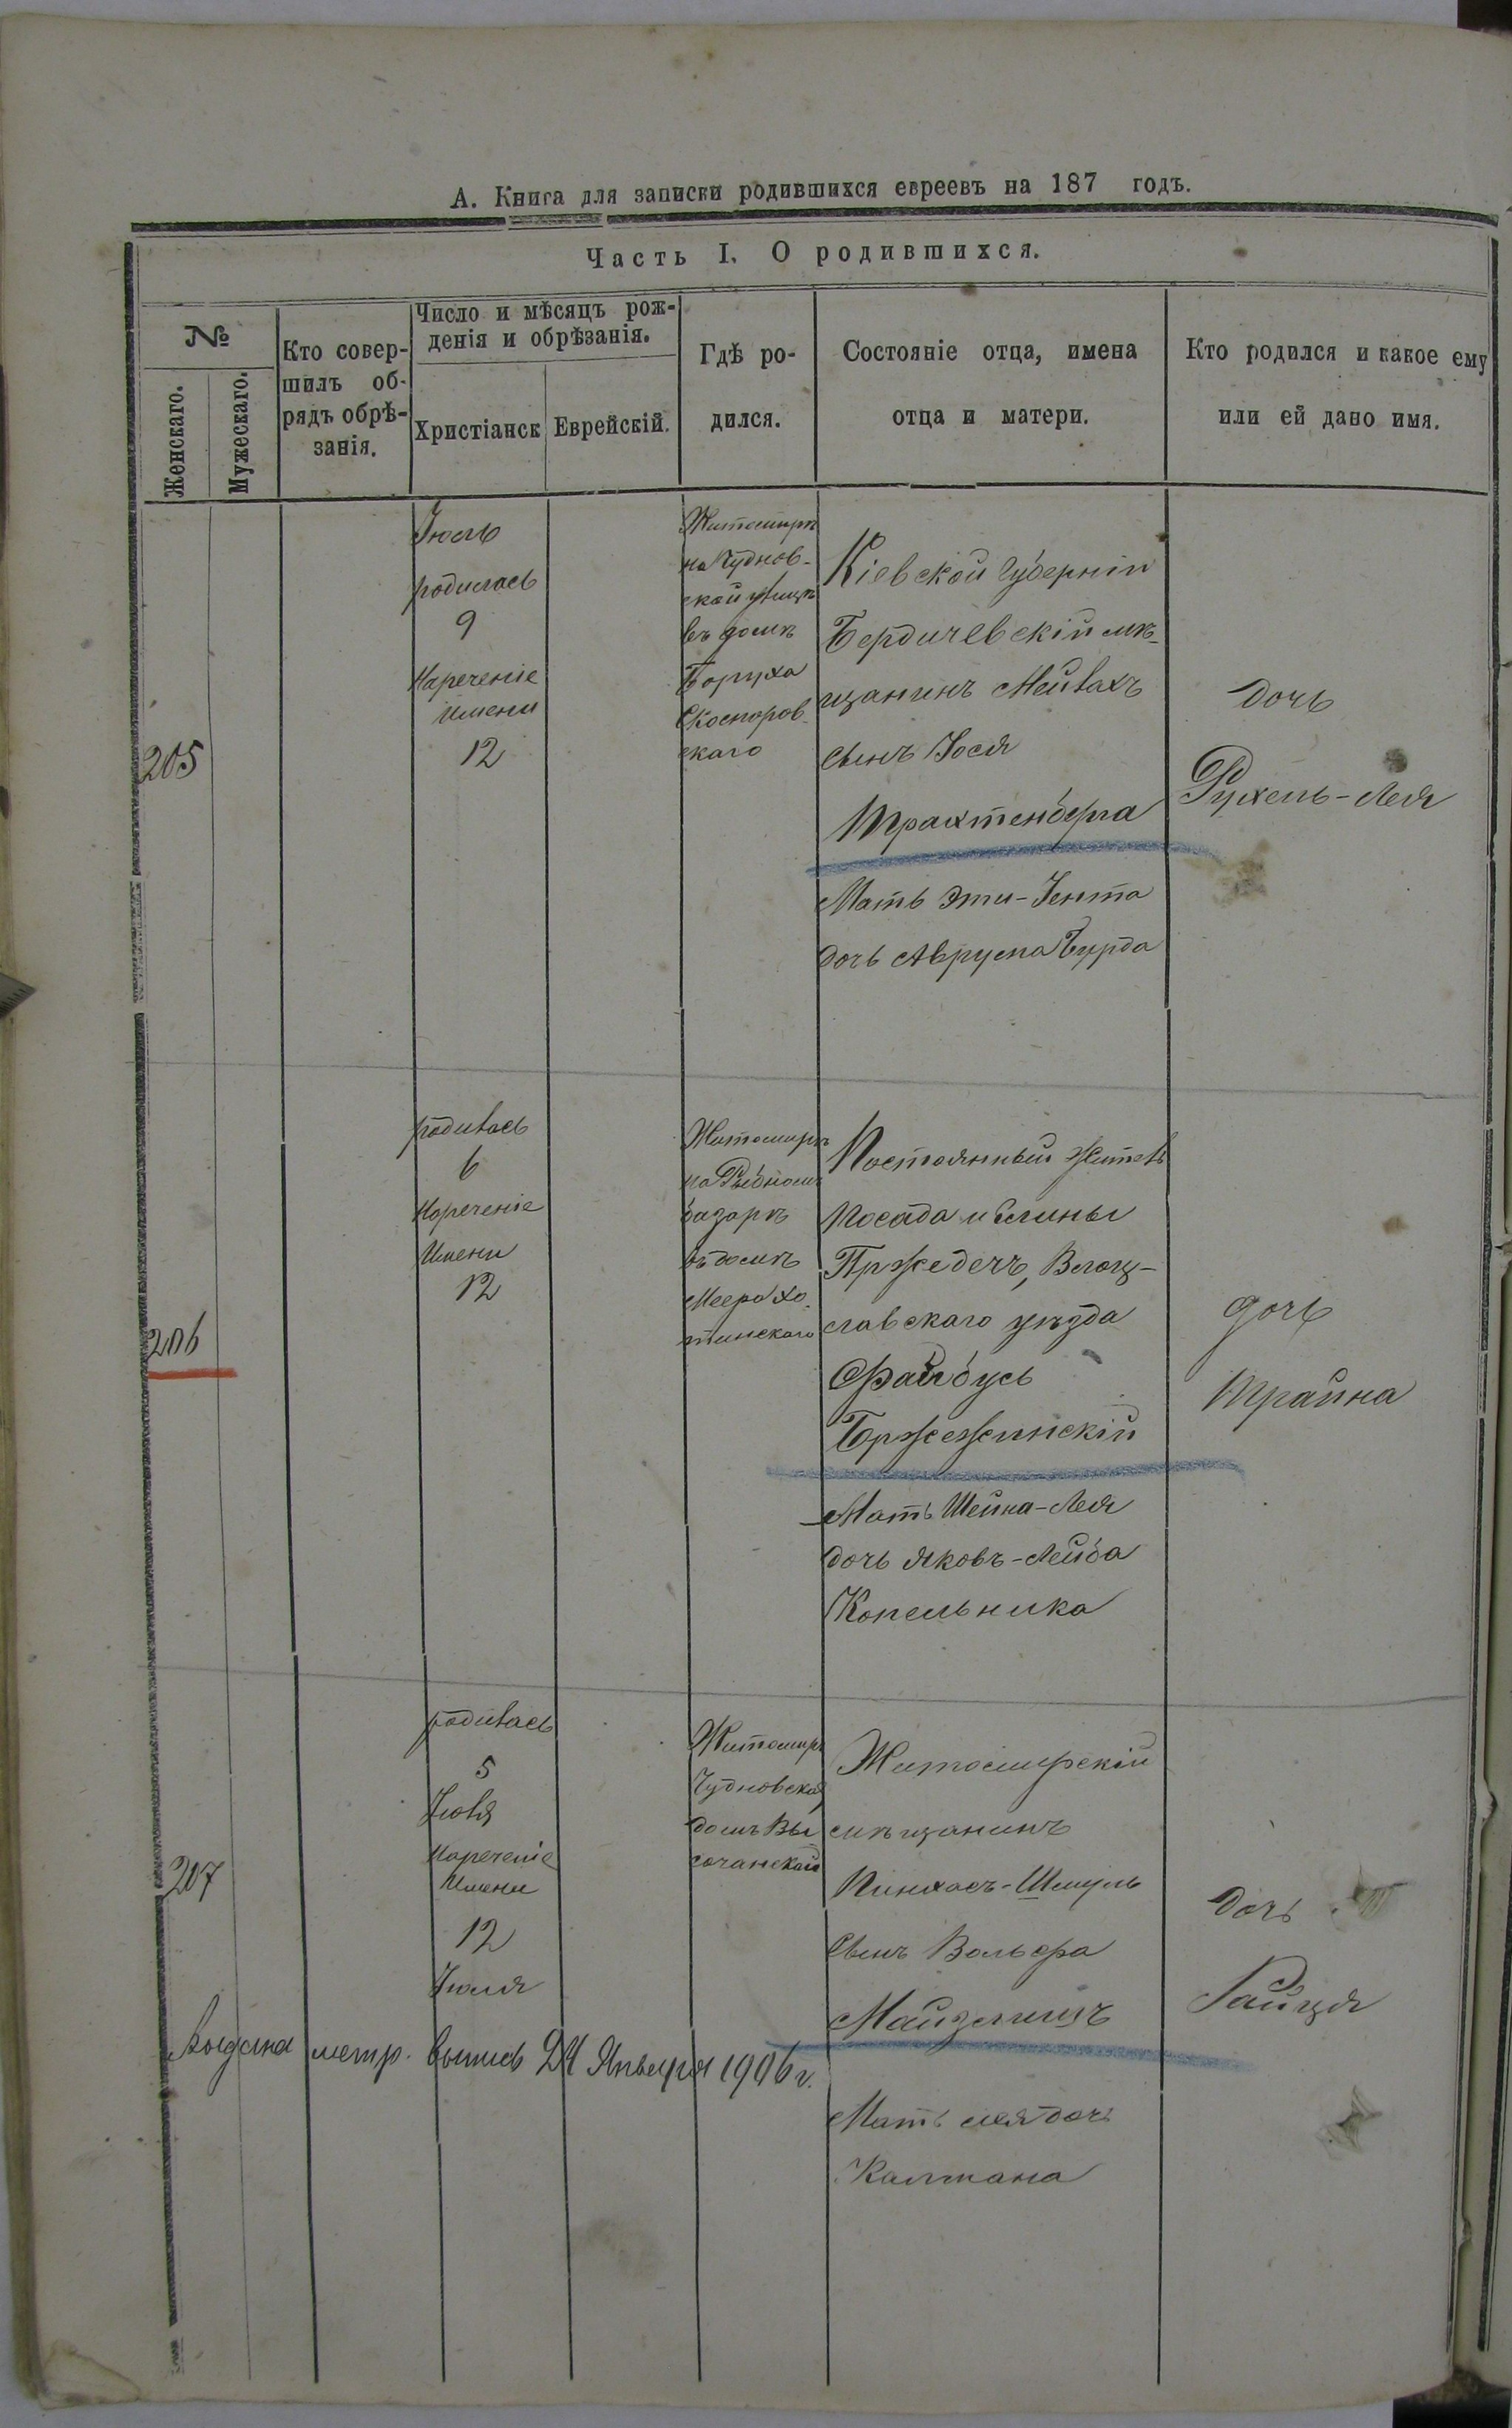 А. Книга для записки родившихся евреевъ на 187 годъ.
Часть I. О родившихся.
№
Женскаго.
Мужескаго.
Кто совер-
шилъ об-
рядъ обрѣ-
занія.
Число и мѣсяцъ рож-
денія и обрѣзанія.
Христіанск
Еврейскій.
Гдѣ ро-
дился.
Состояніе отца, имена
отца и матери.
Кто родился и какое ему
или ей дано имя.
205
Іюль
родилась
9
Нареченіе
имени
12
Житомирѣ
на Чуднов-
ской улицѣ
въ домѣ
Боруха
Скоморов-
скаго
Кіевской Губерніи
Бердичевскій мѣ-
щанинъ Мейлахъ
сынъ Іося
Трахтенберга
Мать Эти-Іента
дочь Аврума Бурда
дочь
Рухель-Лея
206
родилась
6
Нареченіе
Имени
12
Житомирѣ
на Рыбномъ
базарѣ
въ домѣ
Меера Хо-
тинскаго
Постоянный житель
посада и Гмины
Пржедечъ, Влоц-
славскаго уѣзда
Файбусь
Бржежинскій
Мать Шейна-Лея
дочь Яковъ-Лейба
Копельника
дочь
Трайна
207
родилась
5
Іюля
нареченіе
Имени
12
Іюля
Житомиръ
Чудновская
домъ Вы
сочанской
Житомирскій
мѣщанинъ
Пинхасъ-Шмуль
Сынъ Вольфа
Майзлишъ
Мать Лея дочь
Калмана
дочь
Райця
Выдана метр. выпись 24 Января 1906 г.